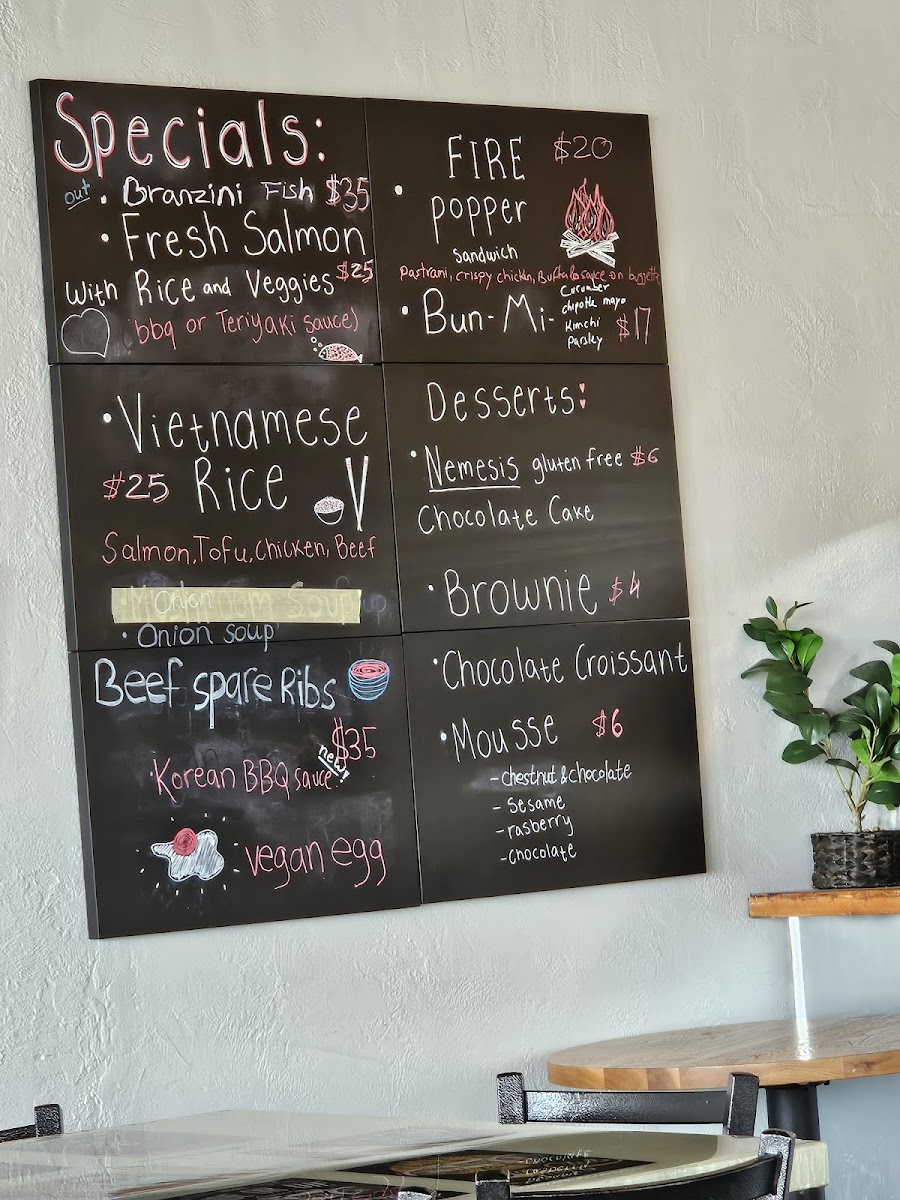 Specials:
out • Branzini Fish $35
• Fresh Salmon
With Rice and Veggies $25
(bbq or Teriyaki sauce)
• Vietnamese
$25 Rice
Salmon, Tofu, Chicken, Beef
Onion Soup
• Onion soup
Beef spare Ribs
$35
new!
Korean BBQ sauce
vegan egg
FIRE $20
• popper
sandwich
pastrami, crispy chicken, Buffalo sauce on buggette
• Bun-Mi-
Cucumber
chipotle mayo
Kimchi
parsley
$17
Desserts:
• Nemesis gluten free $6
Chocolate Cake
• Brownie $4
• Chocolate Croissant
• Mousse $6
- chestnut & chocolate
- Sesame
- rasberry
- chocolate